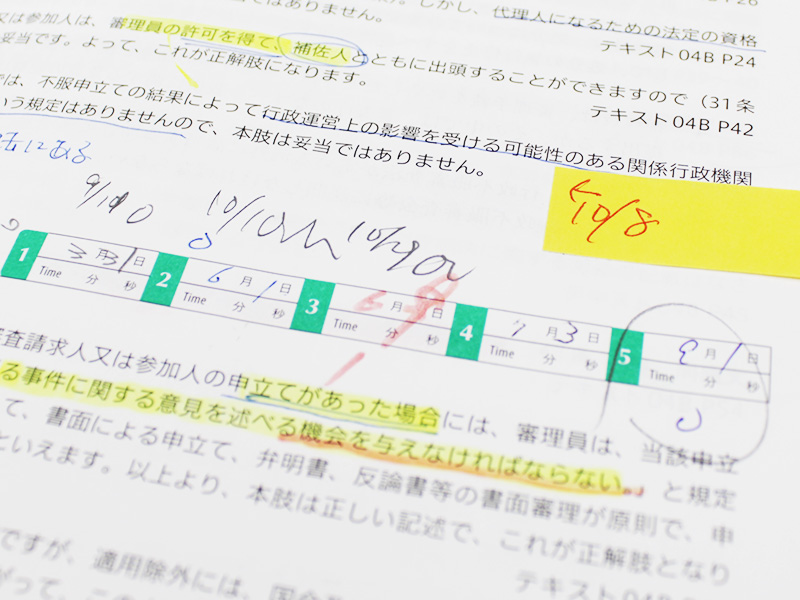 ではありません。しかし、代理人になるための法定の資格
テキスト04B P24
又は参加人は、審理員の許可を得て、補佐人とともに出頭することができますので（31条
妥当です。よって、これが正解肢になります。
テキスト04B P42
では、不服申立ての結果によって行政運営上の影響を受ける可能性のある関係行政機関
いう規定はありませんので、本肢は妥当ではありません。
にある
10/8
1 3月31日 2 6月1日 3 月 日 4 7月3日 5 9月1日
Time 分 秒 Time 分 秒 Time 分 秒 Time 分 秒 Time 分 秒
審査請求人又は参加人の申立てがあった場合には、審理員は、当該申立
る事件に関する意見を述べる機会を与えなければならない。と規定
て、書面による申立て、弁明書、反論書等の書面審理が原則で、申
といえます。以上より、本肢は正しい記述で、これが正解肢となり
テキスト04B
ですが、適用除外には、国会